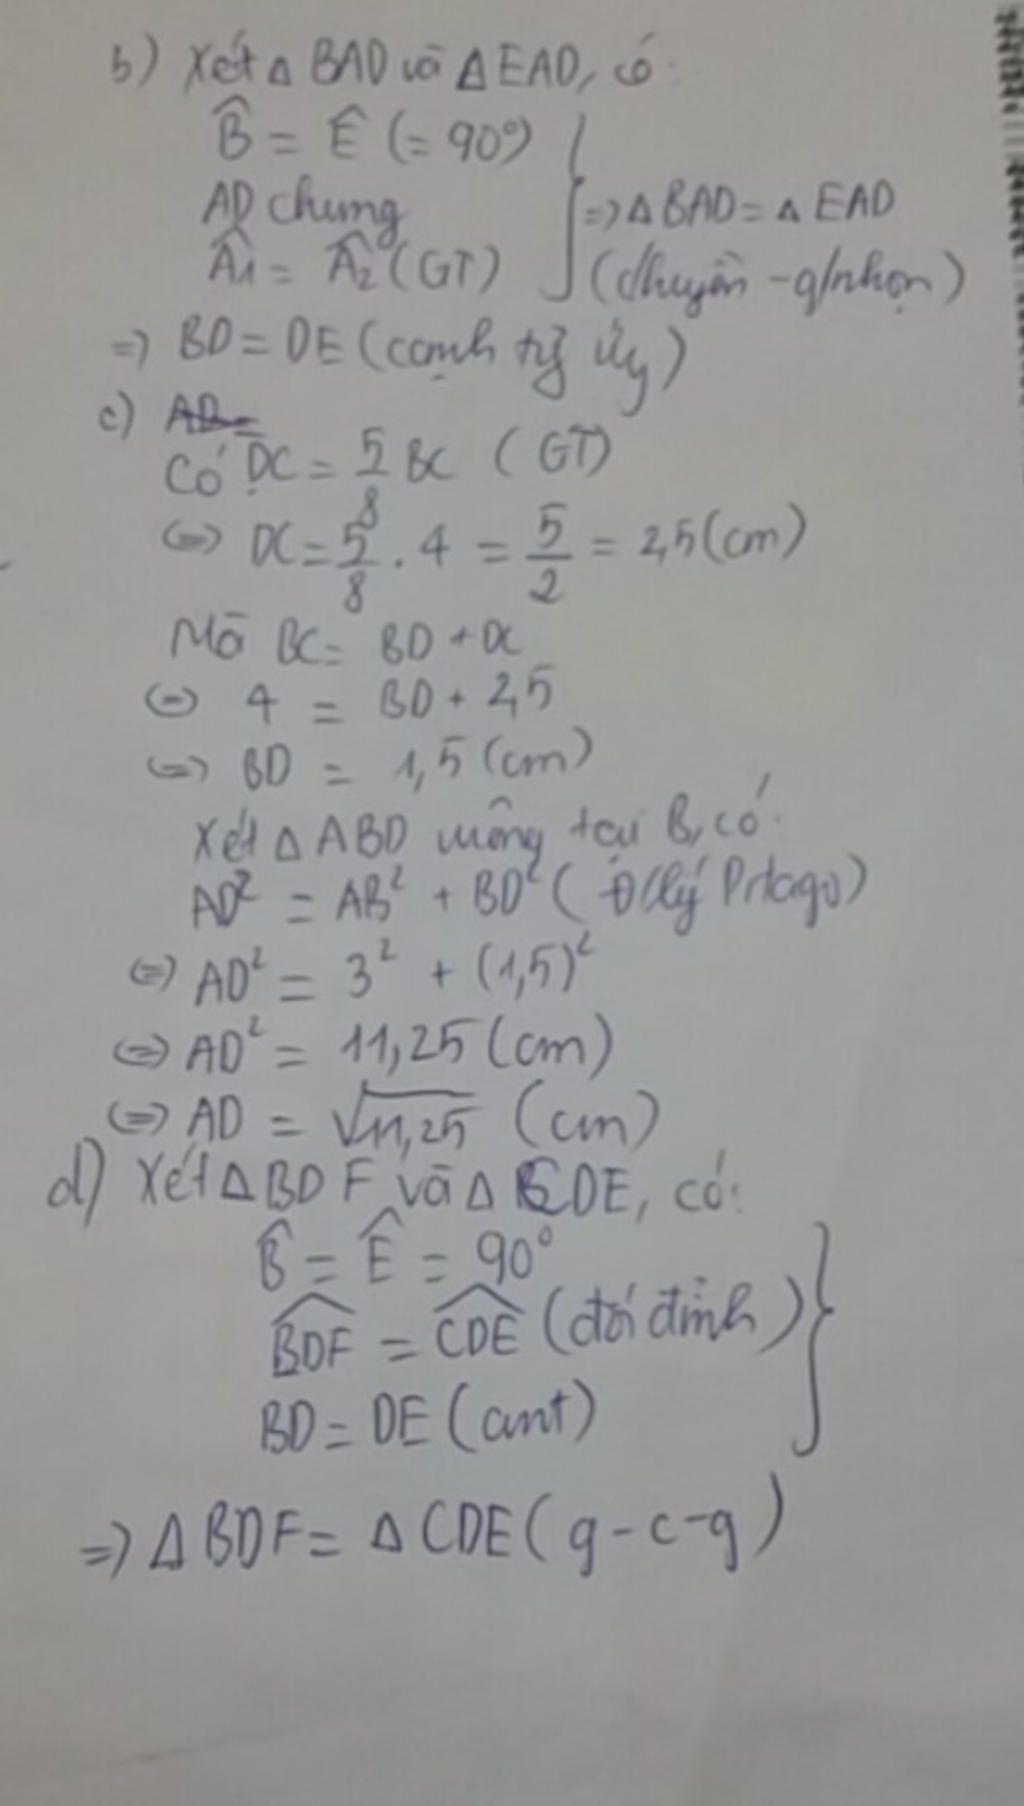 b) Xét Δ BAD và Δ EAD, có:
B̂ = Ê (= 90°)
AD chung
Â1 = Â2 (GT)
=> Δ BAD = Δ EAD
(c/huyền - g/nhọn)
=> BD = DE (cạnh tg ứng)
c) AD =
Có DC = 5/8 BC (GT)
<=> DC = 5/8 . 4 = 5/2 = 2,5 (cm)
Mà BC = BD + DC
<=> 4 = BD + 2,5
<=> BD = 1,5 (cm)
Xét Δ ABD vuông tại B, có:
AD² = AB² + BD² (Đ/lý Pitago)
<=> AD² = 3² + (1,5)²
<=> AD² = 11,25 (cm)
<=> AD = √11,25 (cm)
d) Xét Δ BDF và Δ CDE, có:
B̂ = Ê = 90°
BDF = CDE (đối đỉnh)
BD = DE (cmt)
=> Δ BDF = Δ CDE (g-c-g)